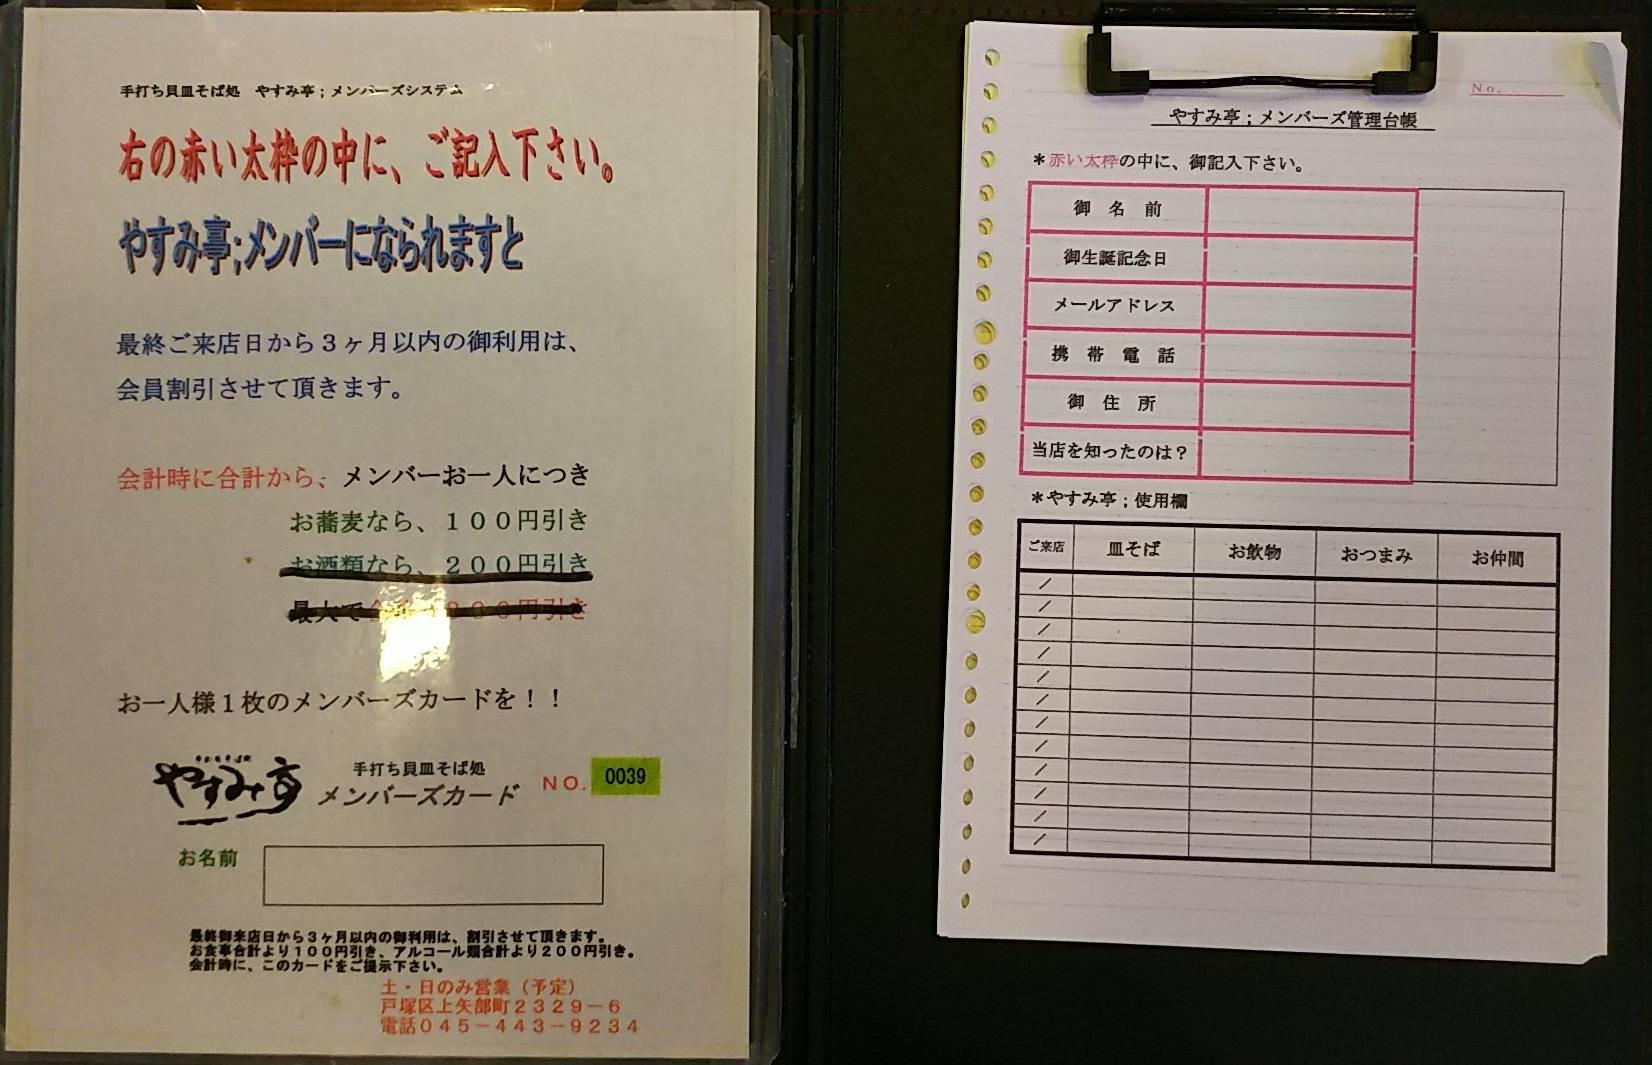 手打ち貝皿そば処　やすみ亭；メンバーズシステム
右の赤い太枠の中に、ご記入下さい。
やすみ亭；メンバーになられますと
最終ご来店日から３ヶ月以内の御利用は、
会員割引させて頂きます。
会計時に合計から、メンバーお一人につき
お蕎麦なら、１００円引き
お酒類なら、２００円引き
最大で 円引き
お一人様１枚のメンバーズカードを！！
やすみ亭
手打ち貝皿そば処
メンバーズカード
ＮＯ. 0039
お名前
最終御来店日から３ヶ月以内の御利用は、割引させて頂きます。
お食事合計より１００円引き、アルコール類合計より２００円引き。
会計時に、このカードをご提示下さい。
土・日のみ営業（予定）
戸塚区上矢部町２３２９－６
電話０４５－４４３－９２３４
Ｎｏ.
やすみ亭；メンバーズ管理台帳
＊赤い太枠の中に、御記入下さい。
御　名　前
御生誕記念日
メールアドレス
携　帯　電　話
御　住　所
当店を知ったのは？
＊やすみ亭；使用欄
ご来店 皿そば お飲物 おつまみ お仲間
／
／
／
／
／
／
／
／
／
／
／
／